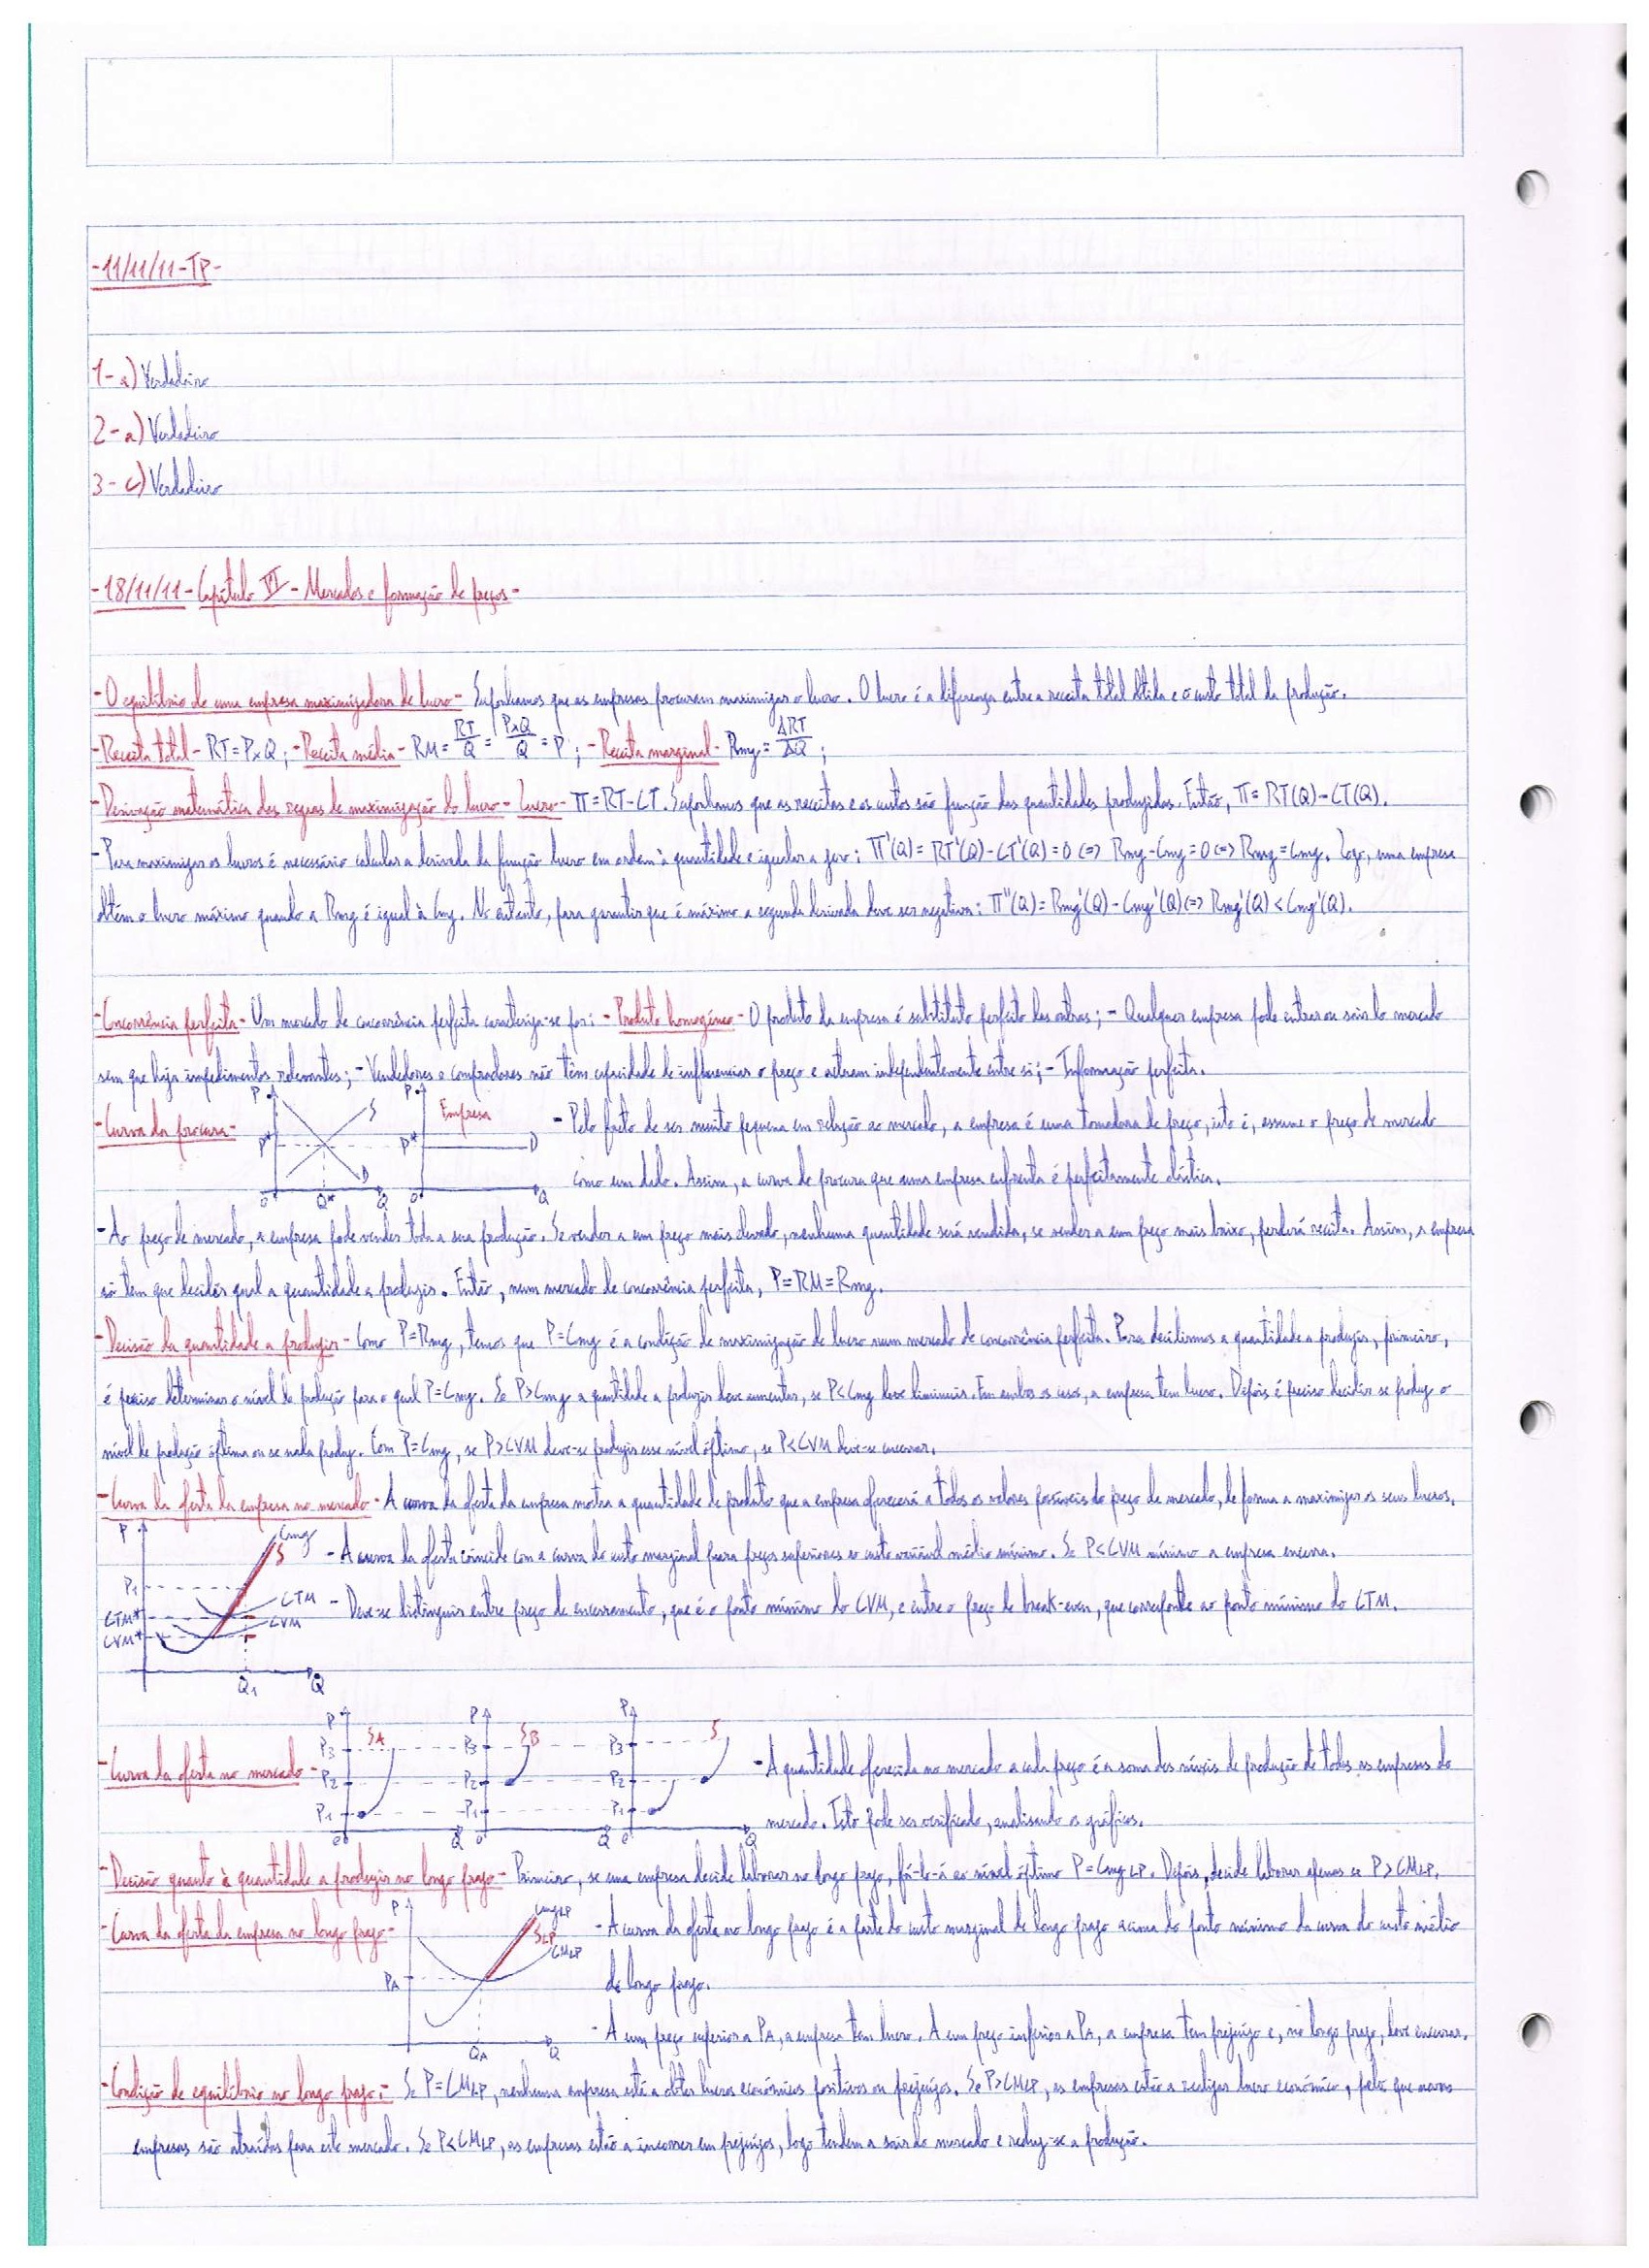 -11/11/11-TP-
1-a) Verdadeiro
2-a) Verdadeiro
3-c) Verdadeiro
-18/11/11-Capítulo VI-Mercados e formação de preços-
-O equilíbrio de uma empresa maximizadora de lucro- Suponhamos que as empresas procuram maximizar o lucro. O lucro é a diferença entre a receita total obtida e o custo total da produção.
-Receita total- RT=PxQ; -Receita média- RM=RT/Q=PxQ/Q=P; -Receita marginal- Rmg=ΔRT/ΔQ;
-Derivação matemática das regras de maximização do lucro- Lucro- π=RT-CT. Suponhamos que as receitas e os custos são função das quantidades produzidas. Então, π=RT(Q)-CT(Q).
-Para maximizar os lucros é necessário calcular a derivada da função lucro em ordem à quantidade e igualar a zero: π'(Q)=RT'(Q)-CT'(Q)=0 (=> Rmg-Cmg=0 (=> Rmg=Cmg. Logo, uma empresa
obtém o lucro máximo quando a Rmg é igual à Cmg. No entanto, para garantir que é máximo a segunda derivada deve ser negativa: π''(Q)=Rmg'(Q)-Cmg'(Q) (=> Rmg'(Q)<Cmg'(Q).
-Concorrência perfeita- Um mercado de concorrência perfeita caracteriza-se por: -Produto homogéneo- O produto da empresa é substituto perfeito das outras; - Qualquer empresa pode entrar ou sair do mercado
sem que haja impedimentos relevantes; -Vendedores e compradores não têm capacidade de influenciar o preço e actuam independentemente entre si; - Informação perfeita.
-Curva da procura-
P S P* D 0 Q* Q
P Empresa P* D 0 Q
- Pelo facto de ser muito pequena em relação ao mercado, a empresa é uma tomadora de preço, isto é, assume o preço de mercado
como um dado. Assim, a curva de procura que uma empresa enfrenta é perfeitamente elástica.
-Ao preço de mercado, a empresa pode vender toda a sua produção. Se vender a um preço mais elevado, nenhuma quantidade será vendida, se vender a um preço mais baixo, perderá receita. Assim, a empresa
só tem que decidir qual a quantidade a produzir. Então, num mercado de concorrência perfeita, P=RM=Rmg.
-Decisão da quantidade a produzir- Como P=Rmg, temos que P=Cmg é a condição de maximização de lucro num mercado de concorrência perfeita. Para decidirmos a quantidade a produzir, primeiro,
é preciso determinar o nível de produção para o qual P=Cmg. Se P>Cmg a quantidade a produzir deve aumentar, se P<Cmg deve diminuir. Em ambos os casos, a empresa tem lucro. Depois é preciso decidir se produz o
nível de produção óptima ou se nada produz. Com P=Cmg, se P>CVM deve-se produzir esse nível óptimo, se P<CVM deve-se encerrar.
-Curva da oferta da empresa no mercado- A curva da oferta da empresa mostra a quantidade de produto que a empresa oferecerá a todos os valores possíveis do preço de mercado, de forma a maximizar os seus lucros.
P Cmg S P1 CTM CTM* CVM CVM* Q1 Q
- A curva da oferta coincide com a curva do custo marginal para preços superiores ao custo variável médio mínimo. Se P<CVM mínimo a empresa encerra.
- Deve-se distinguir entre preço de encerramento, que é o ponto mínimo do CVM, e entre o preço de break-even, que corresponde ao ponto mínimo do CTM.
-Curva da oferta no mercado-
P SA P3 P2 P1 0 Q
P SB P3 P2 P1 0 Q
P S P3 P2 P1 0 Q
-A quantidade oferecida no mercado a cada preço é a soma dos níveis de produção de todas as empresas do
mercado. Isto pode ser verificado, analisando os gráficos.
-Decisão quanto à quantidade a produzir no longo prazo- Primeiro, se uma empresa decide laborar no longo prazo, fá-lo-á ao nível óptimo P=CmgLP. Depois, decide laborar apenas se P>CMLP.
-Curva da oferta da empresa no longo prazo-
P CmgLP SLP CMLP PA QA Q
- A curva da oferta no longo prazo é a parte do custo marginal de longo prazo acima do ponto mínimo da curva do custo médio
de longo prazo.
- A um preço superior a PA, a empresa tem lucro. A um preço inferior a PA, a empresa tem prejuízo e, no longo prazo, deve encerrar.
-Condição de equilíbrio no longo prazo:- Se P=CMLP, nenhuma empresa está a obter lucros económicos positivos ou prejuízos. Se P>CMLP, as empresas estão a realizar lucro económico, pelo que novas
empresas são atraídas para este mercado. Se P<CMLP, as empresas estão a incorrer em prejuízos, logo tendem a sair do mercado e reduz-se a produção.